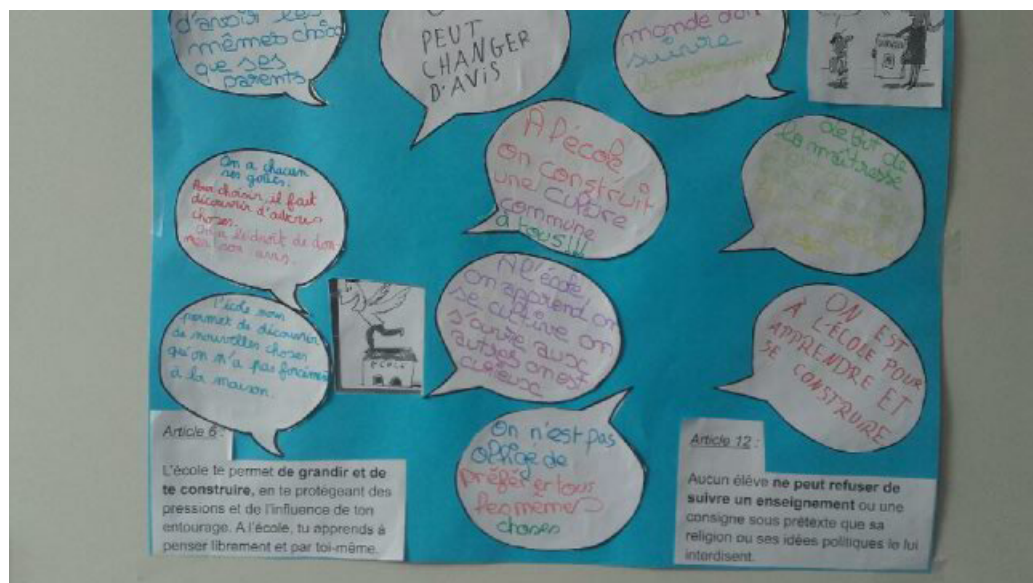 d'avoir les
mêmes choix
que ses
parents
PEUT
CHANGER
D'AVIS
monde doit
suivre
le programme
À l'école
on construit
une culture
commune
à tous!!!
de la maîtresse
On a chacun
ses goûts.
Pour choisir, il faut
découvrir d'autres
choses.
On a le droit de don-
ner son avis.
L'école nous
permet de découvrir
de nouvelles choses
qu'on n'a pas forcément
à la maison.
ECOLE
À l'école
on apprend on
se cultive on
s'ouvre aux
autres on est
curieux
ON EST
À L'ÉCOLE POUR
APPRENDRE ET
SE CONSTRUIRE
On n'est pas
obligé de
préférer tous
les mêmes
choses
Article 6 :
L'école te permet de grandir et de
te construire, en te protégeant des
pressions et de l'influence de ton
entourage. A l'école, tu apprends à
penser librement et par toi-même.
Article 12 :
Aucun élève ne peut refuser de
suivre un enseignement ou une
consigne sous prétexte que sa
religion ou ses idées politiques le lui
interdisent.